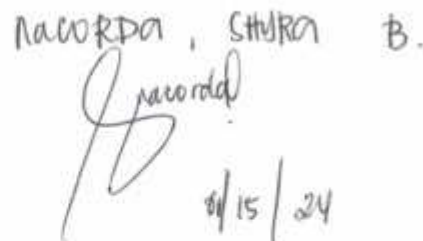 NACORDA, SHYRA B.
nacorda
/15/24